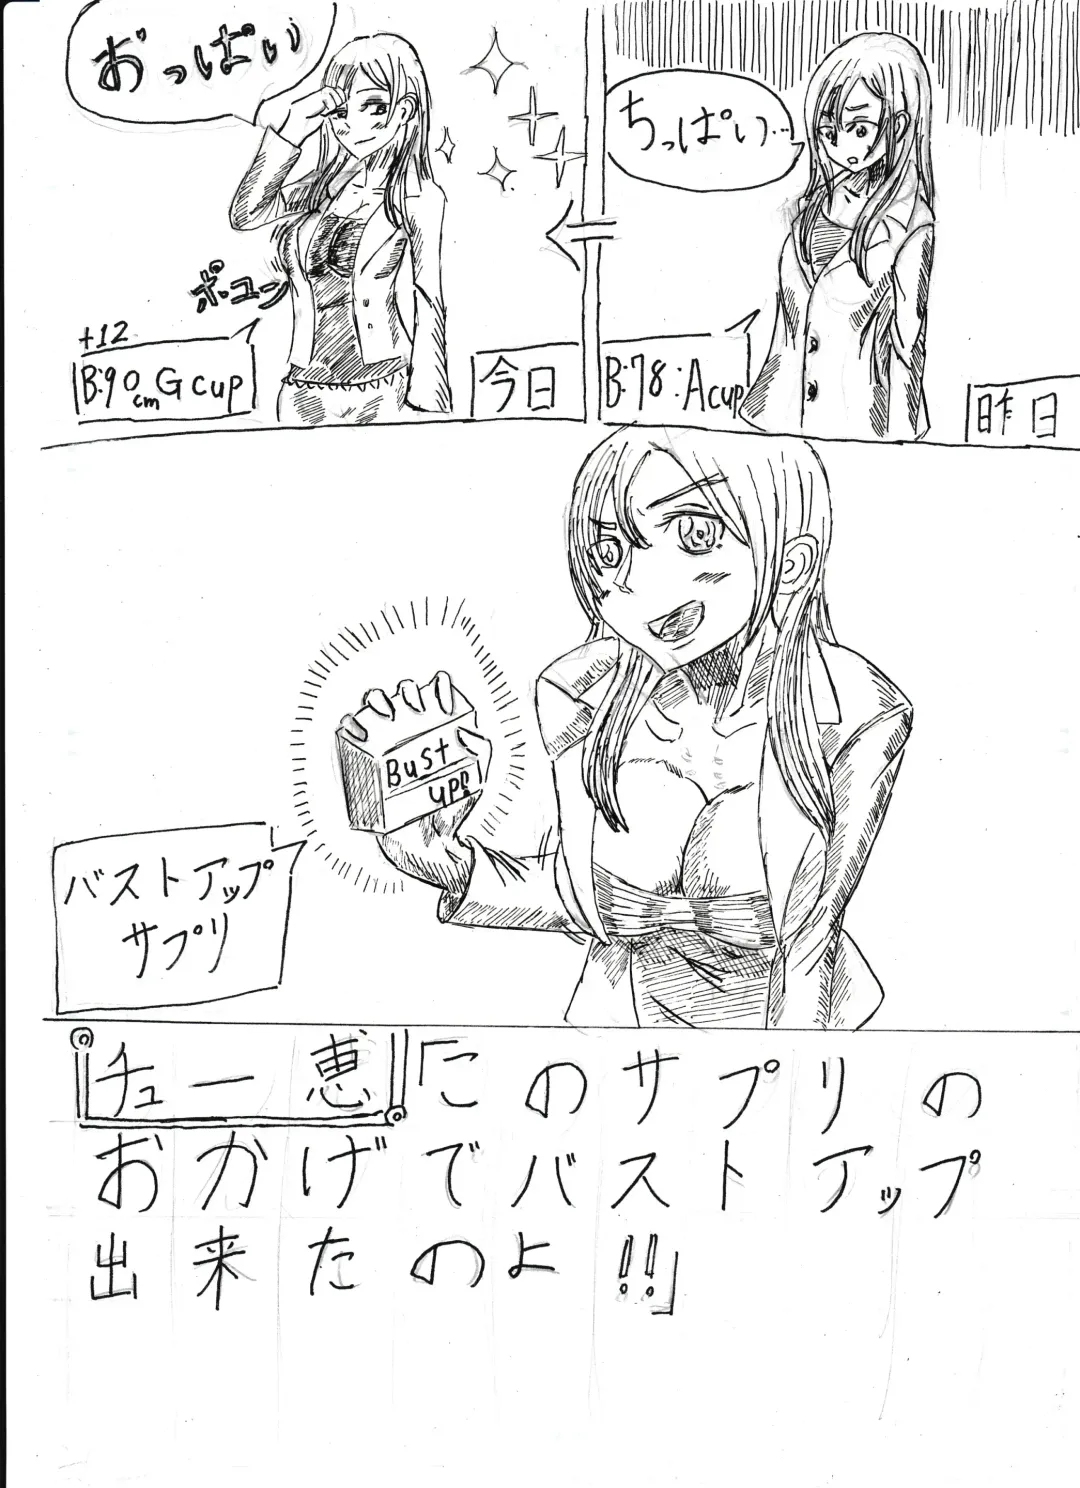 ちっぱい…
B:78:Acup
昨日
おっぱい
ボユン
+12
B:90cm Gcup
今日
Bust
UP!!
バストアップ
サプリ
チュー恵「このサプリの
おかげでバストアップ
出来たのよ!!」